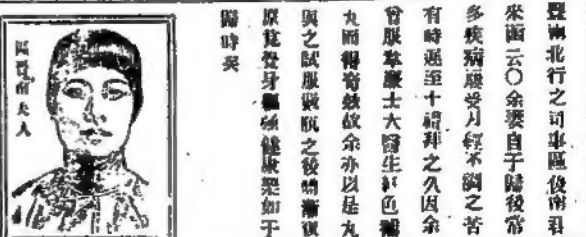 北行之司事區俊甫君
來函云〇余妻自于歸後常
多疾病屢受月經不調之苦
有時遲至十禮拜之久因余
曾服韋廉士大醫生紅色補
丸而得奇效故余亦以是丸
與之試服數瓶之後漸復
原竟身體強健康樂如于
歸時矣
區俊甫夫人